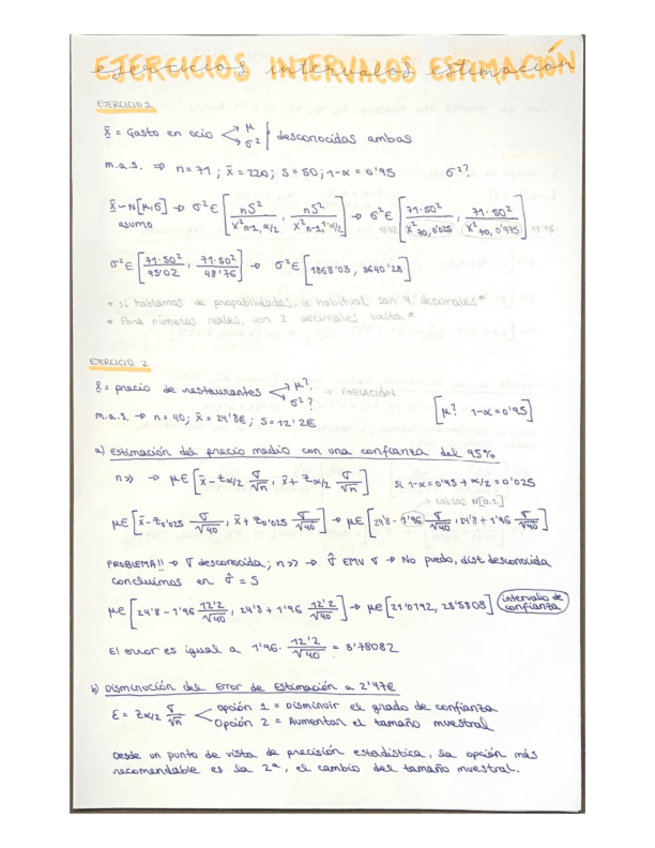 EJERCICIOS INTERVALOS ESTIMACIÓN
ejercicios intervalos estimación
EJERCICIO 1
X̄ = Gasto en ocio < μ σ² | desconocidas ambas
m.a.s. ⇒ n=71 ; x̄=220; S=50; 1-α=0'95 σ²?
X̄~N[μ,σ] → σ²∈[nS²/X²n-1,α/2 , nS²/X²n-1,1-α/2] → σ²∈[71·50²/X²70,0'025 , 71·50²/X²70,0'975] 48'76
asumo
σ²∈[71·50²/95'02 , 71·50²/48'76] → σ²∈[1868'03, 3640'28]
* Si hablamos de propabilidades, lo habitual son 4 decimales*
* Para números reales, con 2 decimales basta*
EJERCICIO 2
X = precio de restaurantes < μ? σ² ? → POBLACIÓN
m.a.s. → n=40; x̄=24'8€; S=12'2€ [μ? 1-α=0'95]
a) Estimación del precio medio con una confianza del 95%
n>> → μ∈[x̄-Zα/2 σ/√n , x̄+Zα/2 σ/√n] Si 1-α=0'95 → α/2=0'025
→ tablas N[0,1]
μ∈[x̄-Z0'025 σ/√40 , x̄+Z0'025 σ/√40] → μ∈[24'8-1'96 σ/√40 , 24'8+1'96 σ/√40]
PROBLEMA!! → σ desconocida; n>> → σ̂ EMV σ → No puedo, dist desconocida
concluimos en σ̂ = S
μ∈[24'8-1'96 12'2/√40 , 24'8+1'96 12'2/√40] → μ∈[21'0192, 28'5808] intervalo de confianza
El error es igual a 1'96· 12'2/√40 = 3'78082
b) Disminución del Error de Estimación a 2'47€
ε = Zα/2 σ/√n < Opción 1 = Disminuir el grado de confianza
Opción 2 = Aumentar el tamaño muestral
Desde un punto de vista de precisión estadística, la opción más
recomendable es la 2ª, el cambio del tamaño muestral.